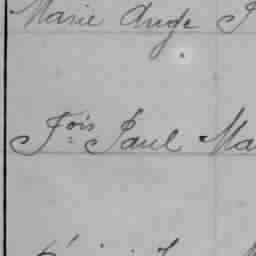 Marie Ange
Fois Paul Ma